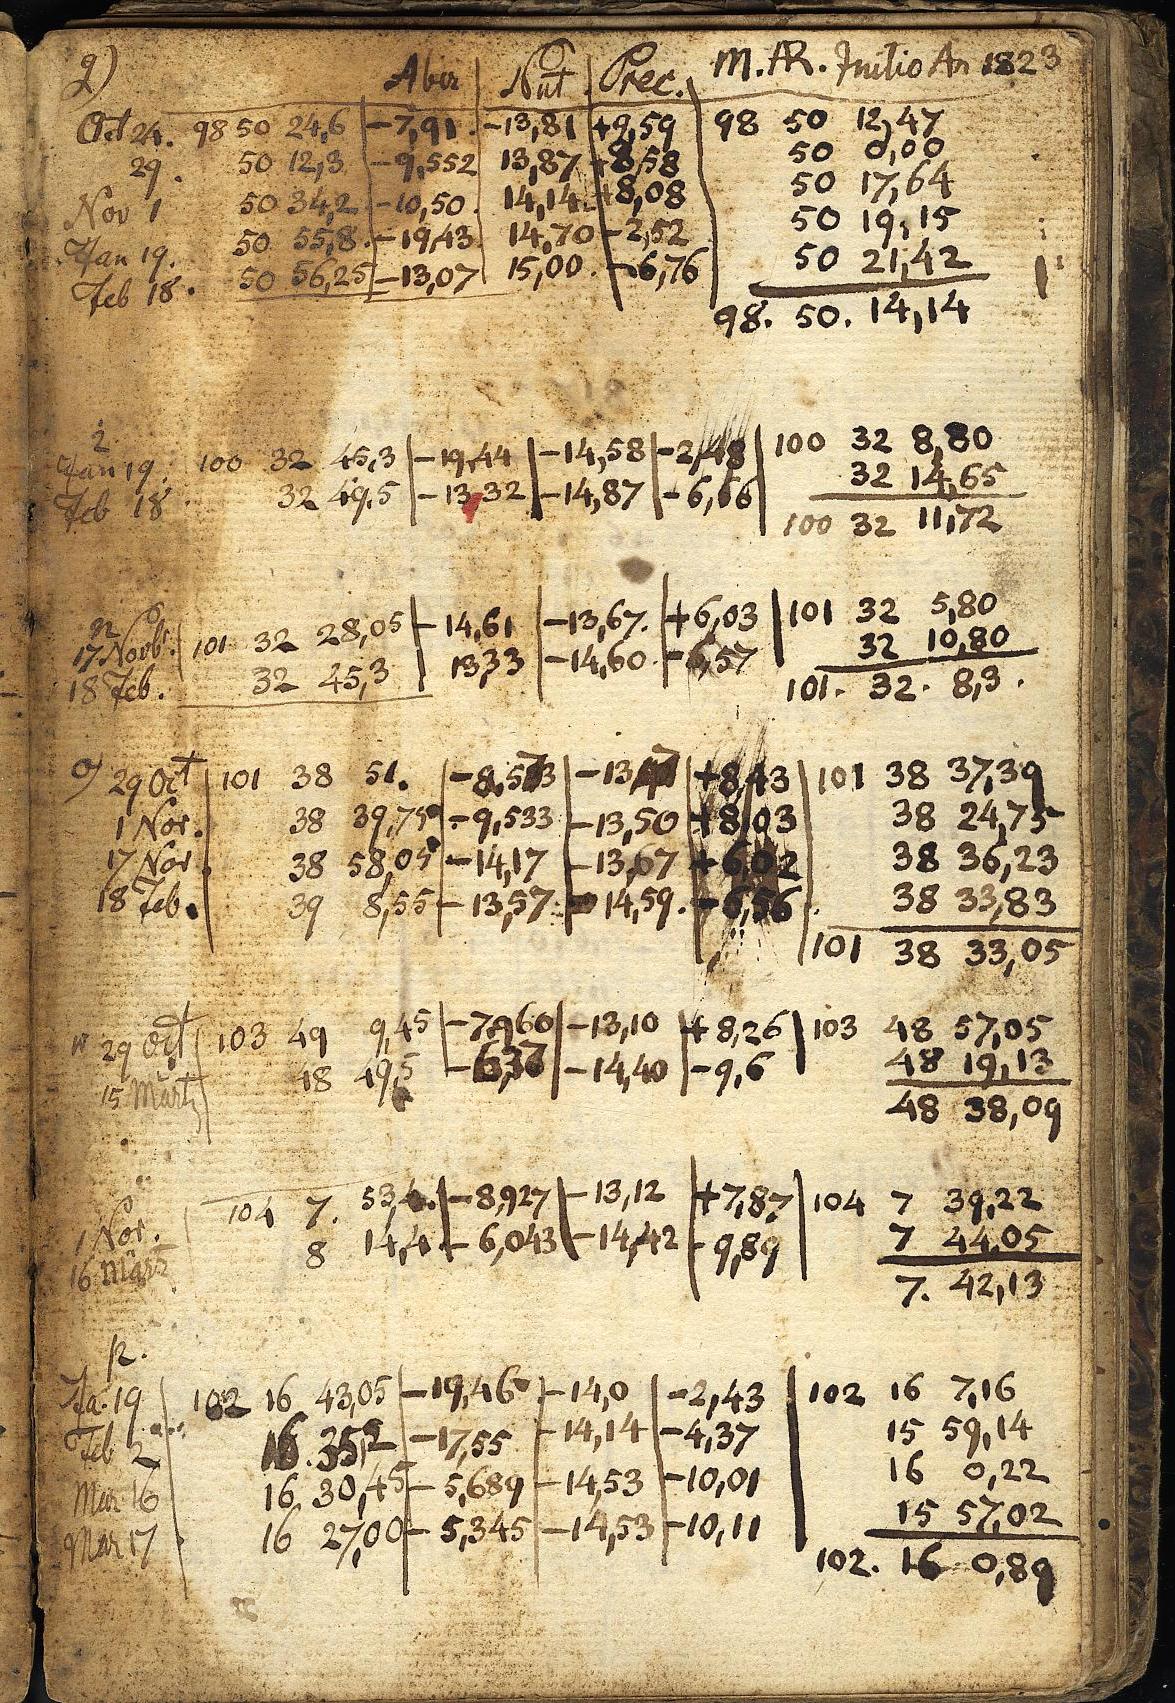 g) Aber Nut Prec. M. AR. Initio An 1823
Oct 24. 98 50 24,6 -7,91. -13,81 +9,59 98 50 12,47
29. 50 12,3 -9,552 13,87 +8,58 50 0,00
Nov 1 50 34,2 -10,50. 14,14 +8,08 50 17,64
Jan 19. 50 55,8. -19,43. 14,70 -2,52 50 19,15
Feb 18. 50 56,25 -13,07 15,00. -6,76 50 21,42
98. 50. 14,14
i.
Jan 19. 100 32 45,3 -19,44 -14,58 -2,48 100 32 8,80
Feb 18 32 49,5 -13,32 -14,87 -6,66 32 14,65
100 32 11,72
n
17 Novb. 101 32 28,05 -14,61 -13,67. +6,03 101 32 5,80
18 Feb. 32 45,3 13,33 -14,60 -6,57 32 10,80
101. 32. 8,3.
o) 29 Oct 101 38 51. -8,573 +8,43 101 38 37,39
1 Nov. 38 39,75 -9,533 -13,50 +8,03 38 24,75
17 Nov. 38 58,05 -14,17 -13,67 +6,02 38 36,23
18 Feb. 39 8,55 -13,57 -14,59. -6,56 38 33,83
101 38 33,05
w 29 Oct 103 49 9,45 -7,960 -13,10 +8,26 103 48 57,05
15 Martz 48 49,5 -6,37 -14,40 -9,6 48 19,13
48 38,09
1 Nov. 104 7. -8,927 -13,12 +7,87 104 7 39,22
16 März 8 14,4 -6,043 -14,42 -9,89 7 44,05
7. 42,13
p.
Ja. 19 102 16 43,05 -19,46 -14,0 -2,43 102 16 7,16
Feb 2 16. 35,2 -17,55 -14,14 -4,37 15 59,14
Mar 16 16. 30,45 -5,689 -14,53 -10,01 16 0,22
Mar 17 16 27,00 -5,345 -14,53 -10,11 15 57,02
102. 16 0,89